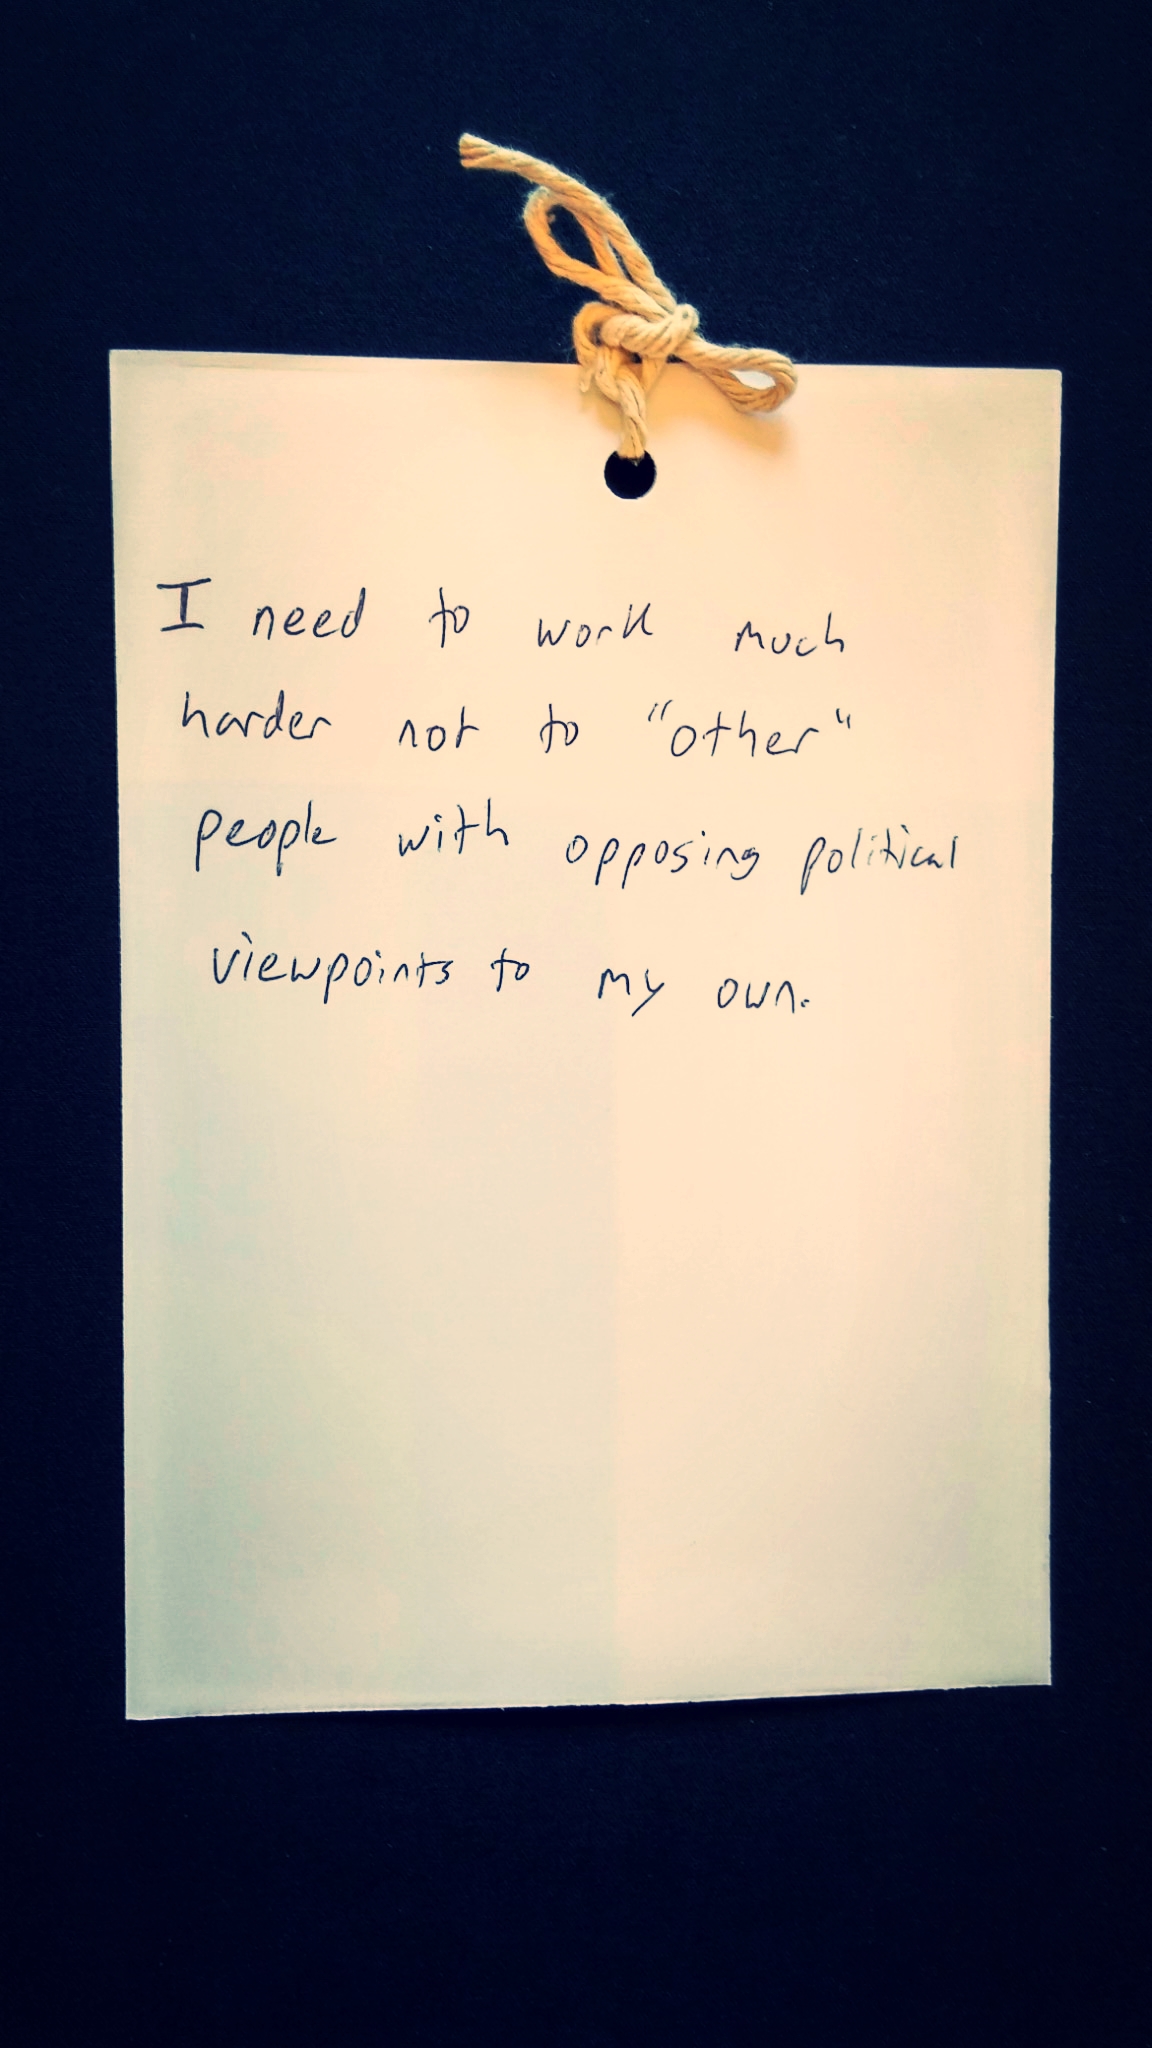 I need to work much
harder not to "other"
people with opposing political
viewpoints to my own.